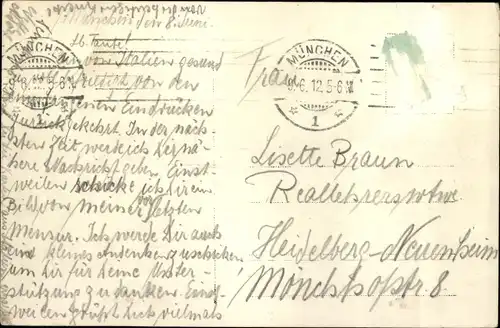 München den 8. Juni.
Lb. Tante!
von Italien gesund
von den
Eindrücken
zurückgekehrt. In der näch-
sten Zeit werde ich Dir nä-
here Nachricht geben. Einst-
weilen schicke ich Dir ein
Bild von meiner letzten
Mensur. Ich werde Dir auch
ein kleines Andenken zuschicken
um Dir für Deine Unter-
stützung zu danken. Einst-
weilen grüßt Dich vielmals
MÜNCHEN
1
MÜNCHEN
9.6.12.5-6N
1
Frau
Lisette Braun
Reallehrerswtwe
Heidelberg-Neuenheim
Mönchhofstr 8